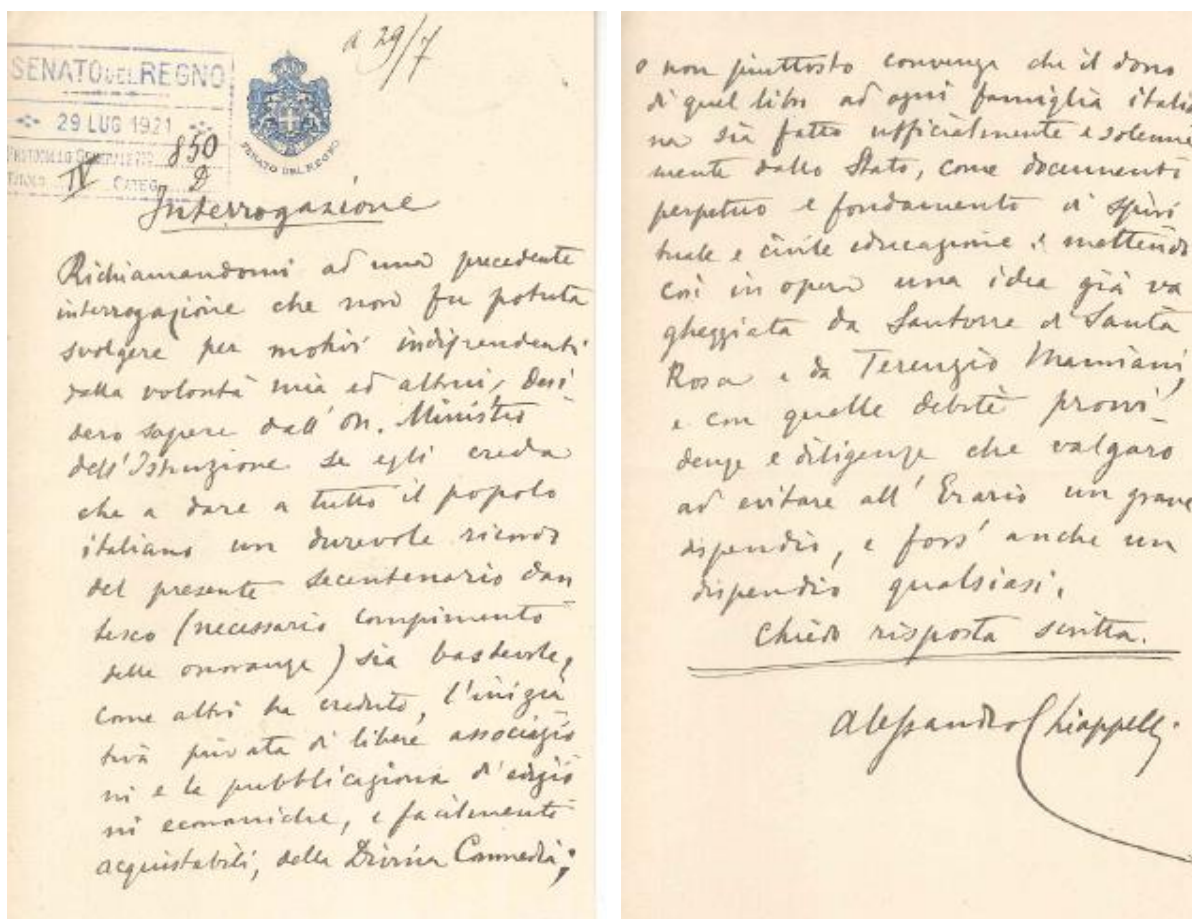 a 29/7
SENATO DEL REGNO
29 LUG 1921
PROTOCOLLO GENERALE N° 850
TITOLO IV CATEG. D
SENATO DEL REGNO
Interrogazione
Richiamandomi ad una precedente
interrogazione che non fu potuta
svolgere per motivi indipendenti
dalla volontà mia ed altrui, desi
dero sapere dall' On. Ministro
dell'Istruzione se egli creda
che a dare a tutto il popolo
italiano un durevole ricordo
del presente secentenario dan
tesco (necessario compimento
delle onoranze) sia bastevole,
come altri ha creduto, l'inizia
tiva privata di libere associazio
ni e la pubblicazione d'edizio
ni economiche, e facilmente
acquistabili, della Divina Commedia;
o non piuttosto convenga che il dono
di quel libro ad ogni famiglia italia
na sia fatto ufficialmente e solenne
mente dallo Stato, come documento
perpetuo e fondamento di spiri
tuale e civile educazione; mettendo
così in opera una idea già va
gheggiata da Santorre di Santa
Rosa e da Terenzio Mamiani,
e con quelle debite provvi_
denze e diligenze che valgano
ad evitare all' Erario un grave
dispendio, e fors' anche un
dispendio qualsiasi.
Chiedo risposta scritta.
Alessandro Chiappelli